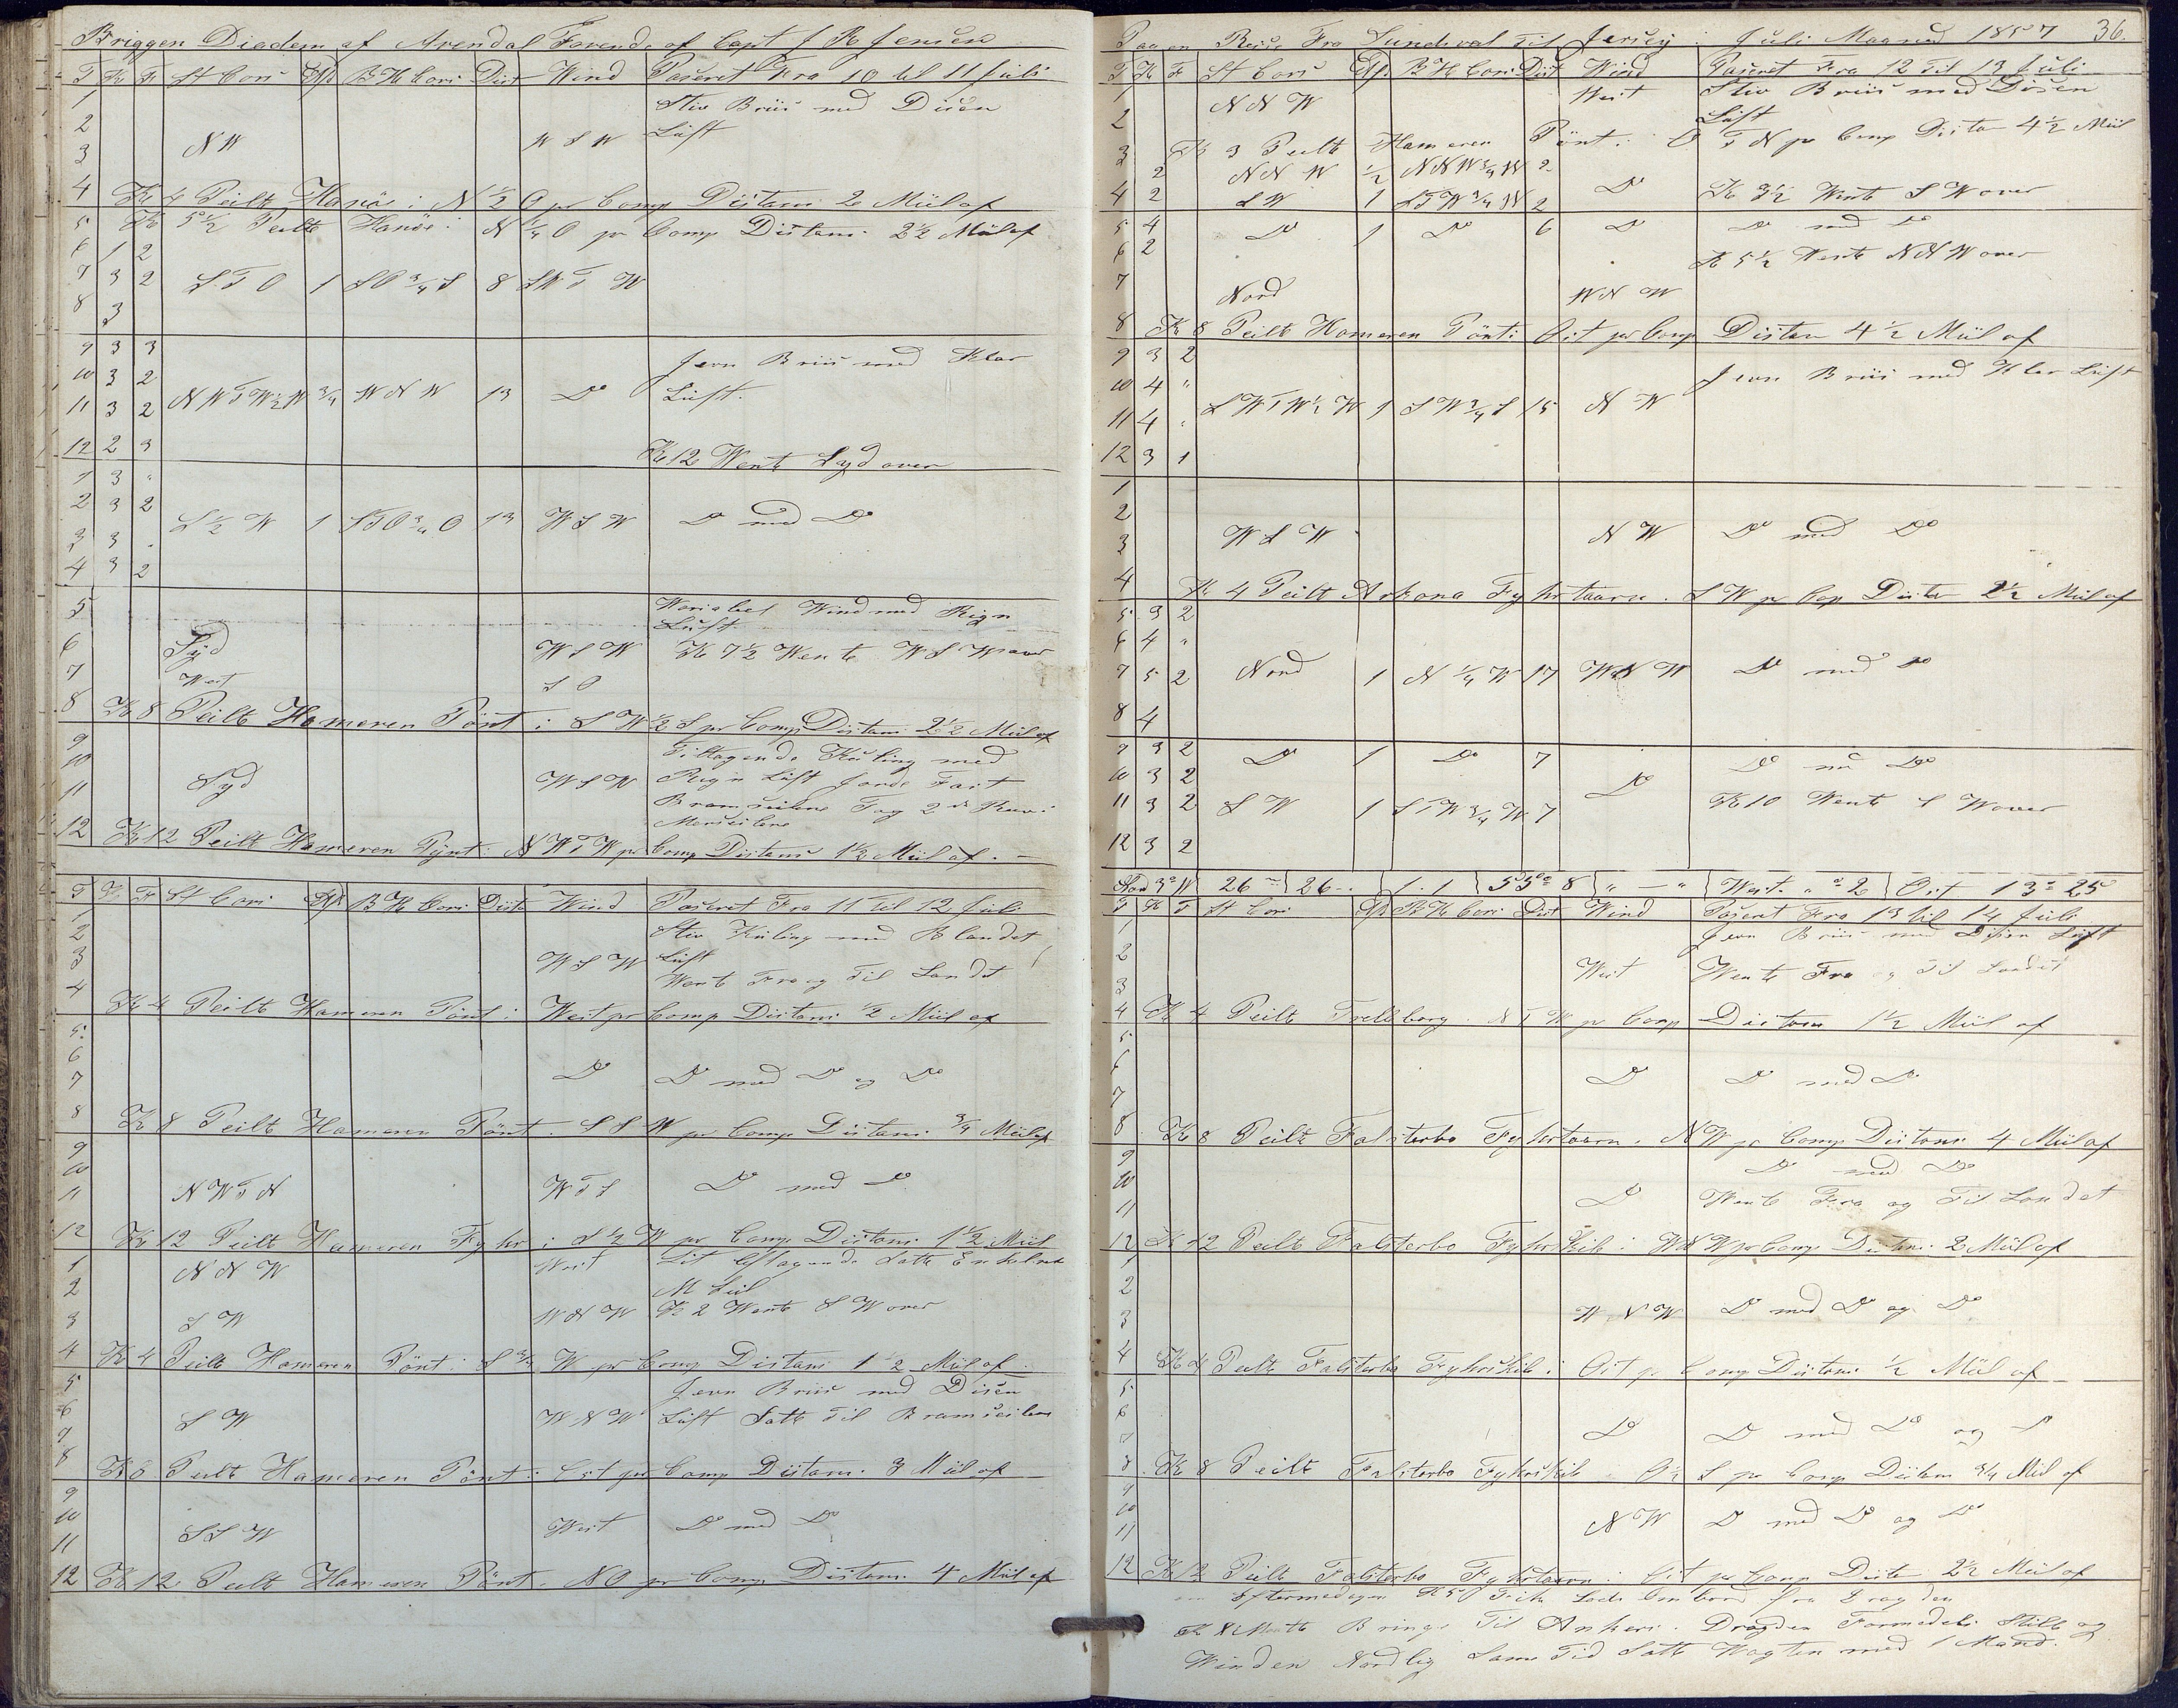 Briggen Diadem af Arendal Førende af Capt J R Jensen
T K F St Cors Afd B H Cors Dist Wind Paseret Fra 10 til 11 Juli
1 Stiv Briis med Disen
2 NW WSW Luft
3
4 Kl 4 Peilt Hanöe i N 1/2 O pr Comp Distans 2 Miil af
5 Kl 5 1/2 Peilte Hanöe i N 1/4 O pr Comp Distans 2 1/2 Miil af
6 1 2
7 3 2 STO 1 SO 3/4 S 8 SWTW
8 3
9 3 3 Jevn Briis med Klar
10 3 2
11 3 2 NWTW 1/2 W 3/4 WNW 13 Do Luft.
12 2 3 Kl 12 Went Syd over
1 3 "
2 3 2 S 1/2 W 1 STO 3/4 O 13 WSW Do med Do
3 3 "
4 3 2
5 Wariabel Wind med Regn
Luft
6 Syd WSW Kl 7 1/2 Wente WSW over
7 West SO
8 Kl 8 Peilte Hameren Pönt i SW 1/2 S pr Comp Distans 2 1/2 Miil af
9 Tiltagende Kuling med
10 Syd WSW Regn Luft Jorde Fast
11 Bramseilene Tog 2de Rev i
Merseilene
12 Kl 12 Peilt Hameren Pynt NWTW pr Comp Distans 1 1/2 Miil af
T K F St Cors Afd B H Cors Dist Wind Paseret Fra 11 til 12 Juli
1
2 Stiv Kuling med Blandet
3 WSW Luft
4 Went Fra og Til Landet
Kl 4 Peilt Hameren Pönt i West pr Comp Distans 1/2 Miil af
5
6
7 Do Do med Do og Do
8 Kl 8 Peilte Hameren Pönt SSW pr Comp Distans 3/4 Miil af
9
10
11 NWTN WTS Do med Do
12 Kl 12 Peilt Hameren Fyhr i S 1/2 W pr Comp Distans 1 1/2 Miil
1 NNW West Lit Aftagende Satte Enkelreb
2 M Seil
3 SW WNW Kl 2 Wente SW over
4 Kl 4 Peilt Hameren Pönt i S 3/4 W pr Comp Distans 1 1/2 Miil af
5 Jevn Briis med Disen
6 SW WNW Luft Satte Til Bramseilene
7
8 Kl 8 Peilt Hameren Pönt i Ost pr Comp Distans 3 Miil af
9
10
11 SSW West Do med Do
12 Kl 12 Peilt Hameren Pönt NO pr Comp Distans 4 Miil af
Paa en Reise Fra Sundsval Til Jersey i Juli Maaned 1857 36.
T K F St Cors Afd B H Cors Dist Wind Paseret Fra 12 Til 13 Juli
1 NNW West Stiv Briis med Disen
2 Luft
3 Kl 3 Peilt Hameren Pönt i OTN pr Comp Distan 4 1/2 Miil
2 NNW 1/2 NNW 3/4 W 2
4 2 SW 1 STW 3/4 W 2 Do Kl 3 1/2 Wente SW over
5 4 Do 1 Do 6 Do Do med Do
6 2 Kl 5 1/2 Wente NNW over
7 Nord WNW
8 Kl 8 Peilt Hameren Pönt i Ost pr Comp Distan 4 1/2 Miil af
9 3 2
10 4 " Jevn Briis med Klar Luft
11 4 " SWTW 1/2 W 1 SW 3/4 S 15 NW
12 3 1
1
2
3 WSW NW Do med Do
4 Kl 4 Peilt Arkona Fyhrtaarn SW pr Cop Distan 2 1/2 Miil af
5 3 2
6 4 "
7 5 2 Nord 1 N 1/4 W 17 WNW Do med Do
8 4
9 3 2 Do 1 Do 7 Do med Do
10 3 2 Do
11 3 2 SW 1 STW 3/4 W 7 Kl 10 Wente SW over
12 3 2
Nor 3° W 26 26 1.1 55° 8 " — " West. " 2 Ost 13° 25
T K F St Cors Afd B H Cors Dist Wind Paseret Fra 13 til 14 Juli
1 Jevn Briis med Disen Luft
2
3 West Wente Fra og Til Landet
4 Kl 4 Peilt Trelleborg NTW pr Comp Distans 1 1/2 Miil af
5
6 Do Do med Do
7
8 Kl 8 Peilt Falsterbo Fyhrtaarn NW pr Comp Distans 4 Miil af
9 Do med Do
10
11 Do Wente Fra og Til Landet
12 Kl 12 Peilt Falsterbo Fyhrskib i WNW pr Comp Distans 2 Miil af
1
2
3 WNW Do med Do og Do
4 Kl 4 Peilt Falsterbo Fyhrskib i Ost pr Comp Distans 1/2 Miil af
5
6 Do Do med Do og Do
7
8 Kl 8 Peilt Falsterbo Fyhrskib O 1/2 S pr Comp Distan 3/4 Miil af
9
10
11 NW Do med Do og Do
12 Kl 12 Peilt Falsterbo Fyhrtaarn i Ost pr Comp Distan 2 1/2 Miil af
Eftermedagen Kl 5 Fik Lods Ombord fra Dragden
Kl 8 Matte Bringe Til Ankers Dragden Formedels Stille og
Winden Nordlig Same Tid Satte Wagten med 1 Mand.